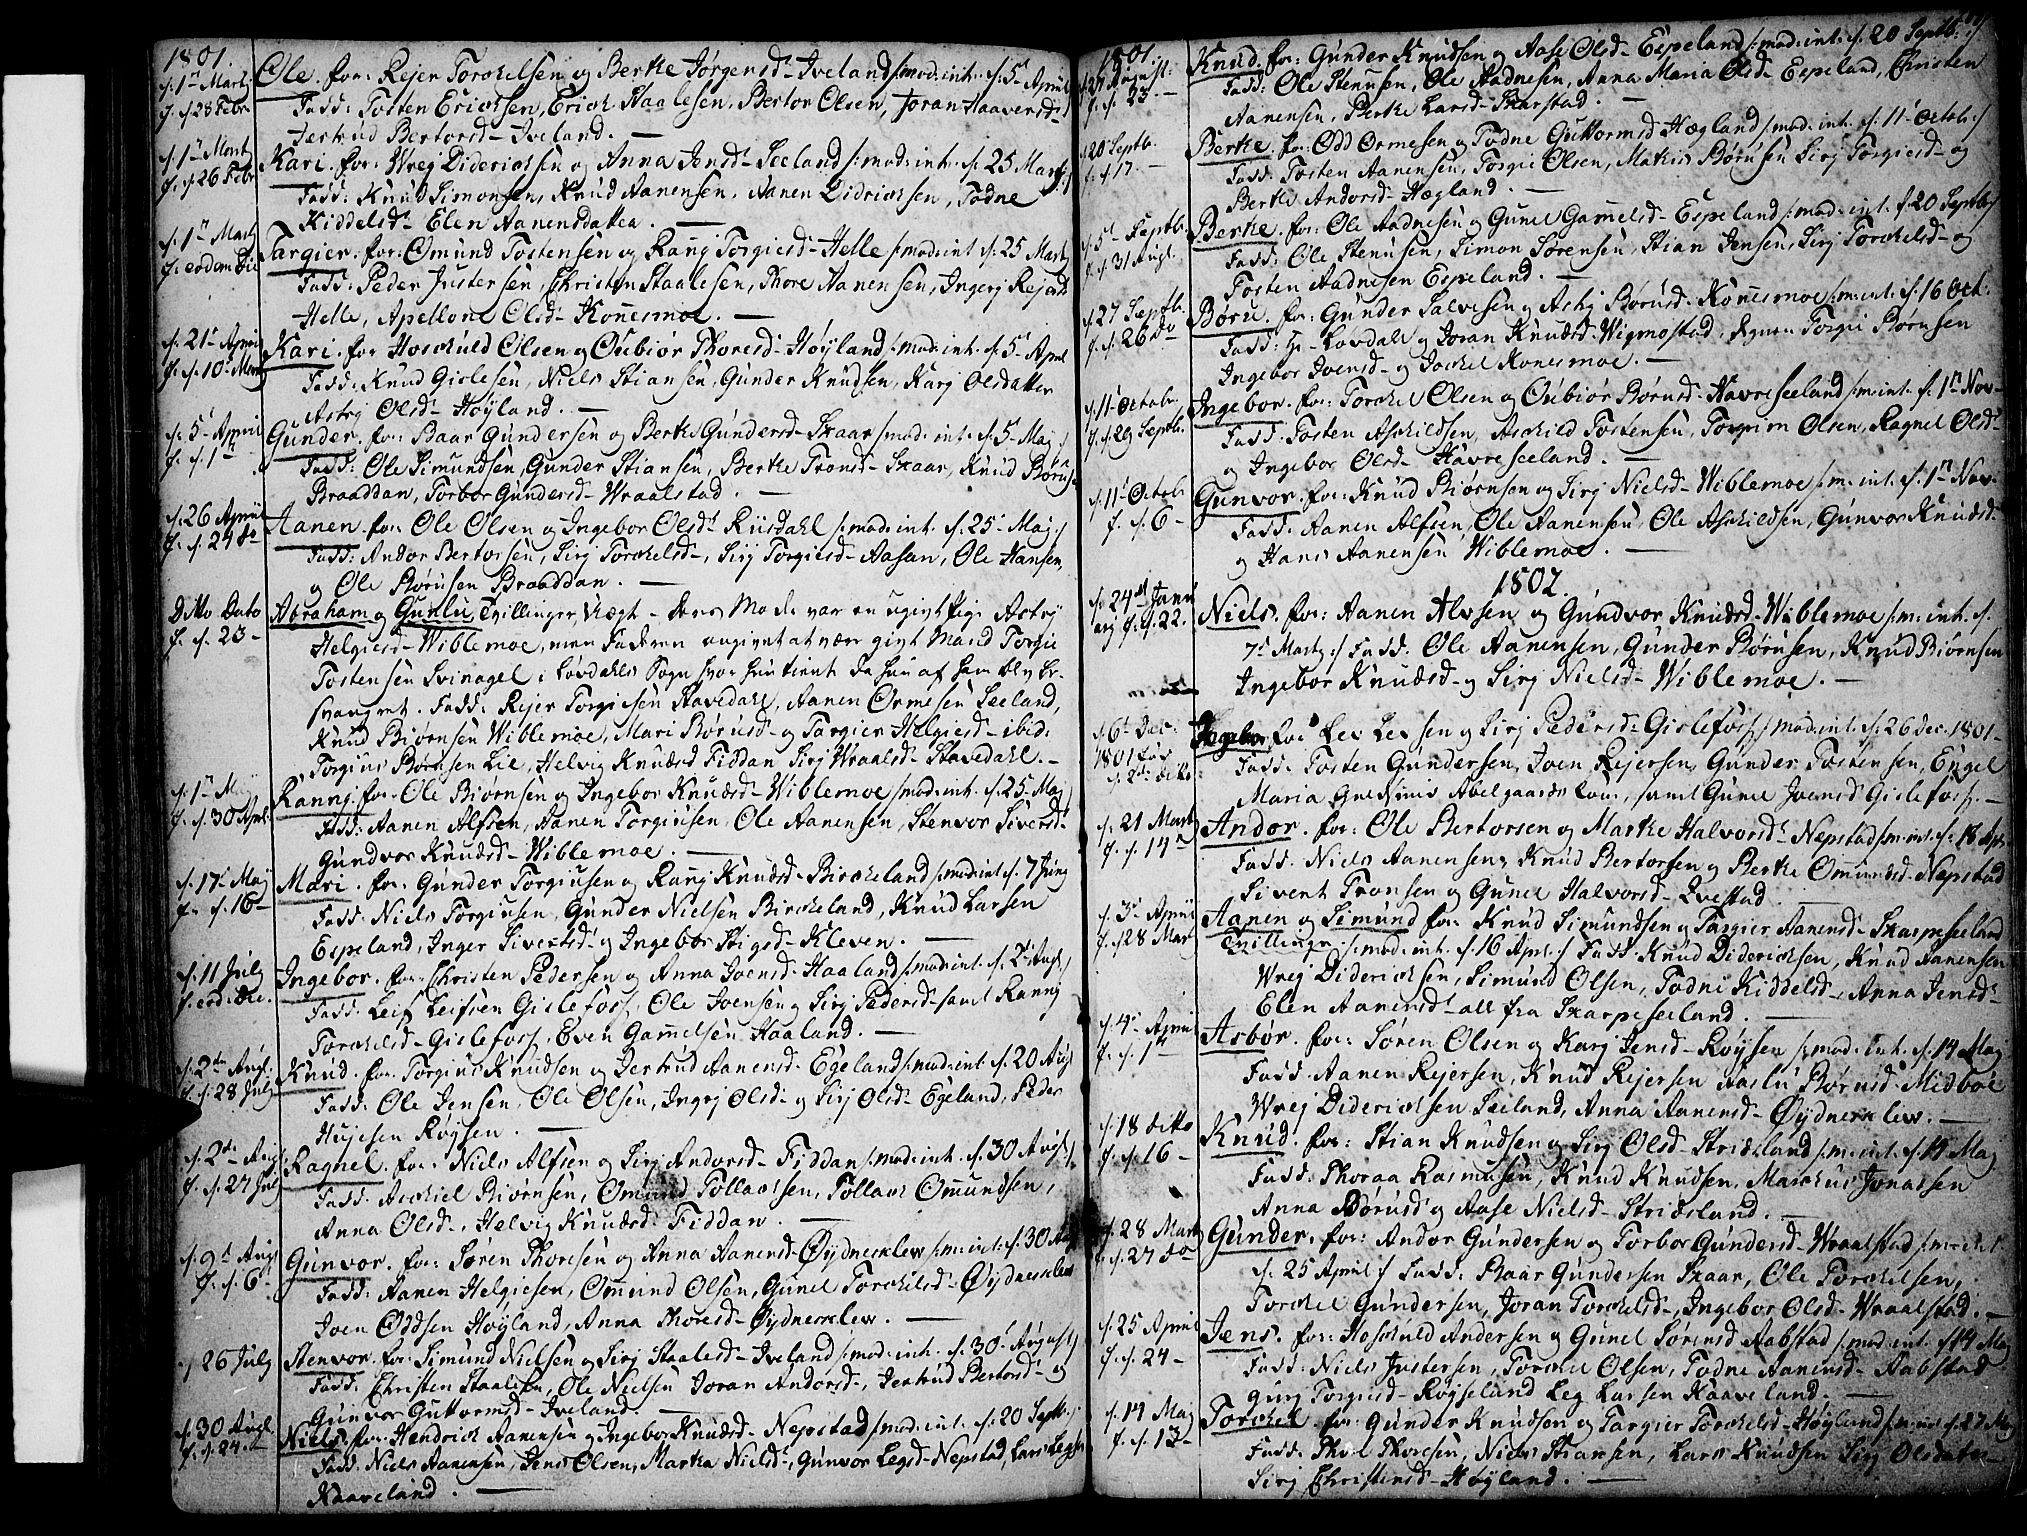 1801.
d. 1ste Martz Ole. for: Rejer Torckelsen og Berte Jörgensd- Iveland /: mod: int. d. 5te April
f. d. 28 Febr. Fadd: Tosten Ericksen, Erick Staalesen, Bertor Olsen, Joran Haaversd-
Jertrud Bertorsd- Iveland. —
d. 1ste Mart Kari. for: Wrej Didericksen og Anna Jensd- Seeland /: mod: int. d. 25 Martz :/
f. d. 26 Febr Fadd: Knud Simonsen, Knud Aanensen, Aanen Didricksen, Todne
Kiddelsd- Elen Aanensdatter. —
d. 1ste Martz Targier. for: Omund Tostensen og Rangj Torgiersd- Helle /: mod: int d. 25 Martz
f. eodem die Fadd: Peder Justersen, Christen Staalesen, Thore Aanensen, Ingerj Rejersd-
Helle, Apellone Olsd- Konesmoe. —
d. 21 April Kari. for Hoskuld Olsen og Oubior Thoresd- Höyland /: mod: int. d. 5te April
f. d. 10 Mart Fadd: Knud Gislesen, Niels Stiansen, Gunder Knudsen, Karj Olsdatter
Astrj Olsd- Höyland. —
d. 5te April Gunder. for: Baar Gundersen og Berte Gundersd- Skaar /: mod: int. d. 5 Maj :/
f. d. 1ste Fadd: Ole Simundsen, Gunder Stiansen, Berte Tronsd- Skaar, Knud Börus-
Braaddan, Torbor Gundersd- Wraalstad. —
d. 26 April Aanen. for: Ole Olsen og Ingebor Olsd- Riisdahl /: mod: int. d. 25 Maj :/
f. d. 24 do Fadd: Andor Bertorsen, Sirj Torckelsd-, Sirj Torgiersd- Aasan, Ole Hansen
og Ole Börusen Braaddan. —
Ditto Dato Abraham og Gunlu, Tvillinger, Uægt- deres Mode var en ugivt Pige Astrj
f. d. 23- Helgiesd- Wiblemoe, men Faderen angivet at vær givt Mand Torgie
Tostensen Svinagel i Lövdahls Sogn hvor hun tient da hun af ham blev be-
svangret. Fadd: Rejer Torgiesen Stavedahl, Aanen Ormesen Seeland,
Knud Biörnsen Wiblemoe, Mari Börusd- og Targier Helgiesd- ibid.
Torgius Börusen Lie, Helvig Knudsd Fiddan Sirj Wraalsd- Stavedahl. —
d. 1ste Maj Rannj. for: Ole Biörnsen og Ingebor Knudsd- Wiblemoe /: mod: int. d. 25 Maj
f. d. 30 April Fadd: Aanen Alfsen, Aanen Torgiusen, Ole Aanensen, Stenvor Siversd-
Gundvor Knudsd- Wiblemoe. —
d. 17 Maj Mari. for: Gunder Torgiusen og Rangj Knudsd- Birckeland /: mod: int d. 7 Junij
f. d. 16- Fadd: Niels Torgiusen, Gunder Nielsen Birckeland, Knud Larsen
Espeland, Inger Siversd- og Ingebor Stigsd- Kleven. —
d. 11 Julj Ingebor. for: Christen Pedersen og Anna Joensd- Haaland /: mod: int. d. 2 Aug :/
f. eod: die. Fadd: Leif Leifsen Gislefoss, Ole Joensen og Sirj Pedersd- samt Rannj
Torckelsd- Gislefoss, Even Gamelsen Haaland. —
d. 2den Aug. Knud. for: Torgius Knudsen og Jertrud Aanensd- Egeland /: mod: int d. 20 Aug
f. d. 28 Julj Fadd: Ole Jensen, Ole Olsen, Ingrj Olsd- og Sirj Olsd- Egeland, Peder
Hujesen Röysen. —
d. 2den Aug Ragnel. for: Niels Alfsen og Sirj Andorsd- Fiddan /: mod: int. d. 30 Aug :/
f. d. 27 Julj Fadd: Asckiel Biörnsen, Omund Tollacksen, Tollack Omundsen,
Anna Olsd-, Helvig Knudsd- Fiddan. —
d. 9de Aug Gunvor. for: Sören Thoresen og Anna Aanensd- Öydneskley /: m: int: d. 30 Aug
f. d. 6- Fadd: Aanen Helgiesen, Omund Olsen, Gunel Torckelsd- Öydneskley
Joen Oddsen Höyland, Anna Thoresd- Öydneskley. —
d. 26 Julj Stenvor. for: Simund Nielsen og Sirj Staalesd- Iveland /: mod: int. d. 30 August :/
Fadd: Christen Staalesen, Ole Nielsen Joran Andorsd-, Jertrud Bertorsd- og
Gunvor Guttormsd- Iveland. —
d. 30 Aug. Niels. for: Hendrick Aanensen og Ingebor Knudsd- Nepstad /: mod: int. d. 20 Septb. :/
f. d. 24de Fadd: Niels Aanensen, Jens Olsen, Marta Nielsd-, Gunvor Legsd- Nepstad, Lars Legs-
Haaveland. —
1801.
d. 27 August Knud. for: Gunder Knudsen og Aase Olsd- Espeland /: mod: int. d. 20 Septb. :/
f. d. 23. — Fadd: Ole Stenusen, Ole Aadnesen, Anna Maria Olsd- Espeland, Christen
Aanensen, Berte Larsd- Skarstad. —
d. 20 Septb. Berte. for: Odd Ormesen og Todne Guttormsd- Hægland /: mod: int. d. 11 Octob. :/
f. d. 17. — Fadd: Tosten Aanensen, Torgie Olsen, Mathis Börusen Sirj Torgiesd- og
Berte Andorsd- Hægland. —
d. 5te Septb. Berte. for: Ole Aadnesen og Gunel Gamelsd- Espeland /: mod: int. d. 20 Septb. :/
f. d. 31 Aug. Fadd: Ole Stenusen, Simon Sörensen, Stian Jensen, Sirj Torckelsd- og
Tosten Aadnesen Espeland. —
d. 27 Septb. Böru. for: Gunder Salvesen og Astrj Börusd- Konesmoe /: m: int. d. 16 Oct.
f. d. 26 do Fadd: Hr Lovdahl og Joran Knudsd- Wigmostad, Torgie Börusen
Ingebor Joensd- og Jockel Konesmoe. —
d. 11 Octobr. Ingebor. for: Torckel Olsen og Oubiör Börusd- Havreseeland /: m: int. d. 1ste Nov-
f. d. 29 Septb. Fadd: Tosten Aschildsen, Aschild Tostensen, Torgrim Olsen, Ragnel Olsd-
og Ingebor Olsd- Havreseeland. —
d. 11 Octob. Gunvor. for: Knud Biörnsen og Sirj Nielsd- Wiblemoe /: m: int. d. 1ste Nov-
f. d. 6 — Fadd: Aanen Alfsen, Ole Aanensen, Ole Aschildsen, Gunvor Knudsd-
og Hans Aanensen Wiblemoe. —
1802.
d. 24de Janu- Niels. for: Aanen Alvsen og Gundvor Knudsd- Wiblemoe /: m: int. d.
arj f. d. 22. 7 Martz :/ Fadd: Ole Aanensen, Gunder Börusen, Knud Biörnsen
Ingebor Knudsd- og Sirj Nielsd- Wiblemoe. —
d. 6te Dec. Ingebor for Lev Levsen og Sirj Pedersd- Gislefoss /: mod: int. d. 26 Dec. 1801-
1801 föd Fadd: Tosten Gundersen, Joen Rejersen, Gunder Tostensen, Engel
d. 2de ditto Maria Abelgaards samt Gunel Joensd- Gislefoss. —
d. 21 Mart Andor. for: Ole Bertorsen og Marte Halvorsd- Nepstad /: m: int. d. 18 Apr.
f. d. 14de Fadd. Niels Aanensen, Knud Bertorsen og Berte Omundsd- Nepstad
Sivert Tronsen og Gunel Halvorsd- Qvestad. —
d. 3de April Aanen og Simund for: Knud Simundsen og Targier Aanensd- Skarpeseeland
f. d. 28 Mar Tvillinger /: mod: int. d. 16 Apr. :/ Fadd: Knud Didericksen, Knud Aanensen
Wrej Didericksen, Simund Olsen, Todni Kiddelsd-, Anna Jensd-
Elen Aanensd- all fra Skarpeseeland. —
d. 4de April Asbör. for: Sören Olsen og Karj Jensd- Röysen /: mod: int. d. 14 Maj
f. d. 1ste Fadd: Aanen Rejersen, Knud Rejersen Aaslu Börusd- Midböe
Wrej Didericksen Seeland, Anna Aanensd- Öydneskley. —
d. 18 ditto Knud. for: Stian Knudsen og Sirj Olsd- Stridsland /: m: int. d. 14 Maj
f. d. 16 — Fadd: Thoraa Rasmusen, Knud Knudsen, Marckus Jonassen
Anna Börusd og Aase Nielsd- Stridsland. —
d. 28 Mart Gunder. for: Andor Gundersen og Torbor Gundersd- Wraalstad /: m: int.
f. d. 27 do d. 25 April :/ Fadd: Baar Gundersen Skaar, Ole Torckelsen,
Torckel Gundersen, Joran Torckelsd-, Ingebor Olsd- Wraalstad. —
d. 25 April Jens. for: Hoskuld Andersen og Gunel Sörensd Aabstad /: mod: int. d 14 Maj
f. d. 24 — Fadd: Niels Justersen, Torckel Olsen, Todne Aanensd- Aabstad
Gurj Torgiersd- Röyseland Leg Larsen Haaveland. —
d. 14 Maj Torckel. for: Gunder Knudsen og Targier Torckelsd- Höyland /: m: int d. 27 Maj
f. d. 13 — Fadd: Thore Thoresen, Niels Stiansen, Lars Knudsen Sirj Olsdatter
Sirj Christensd- Höyland. —